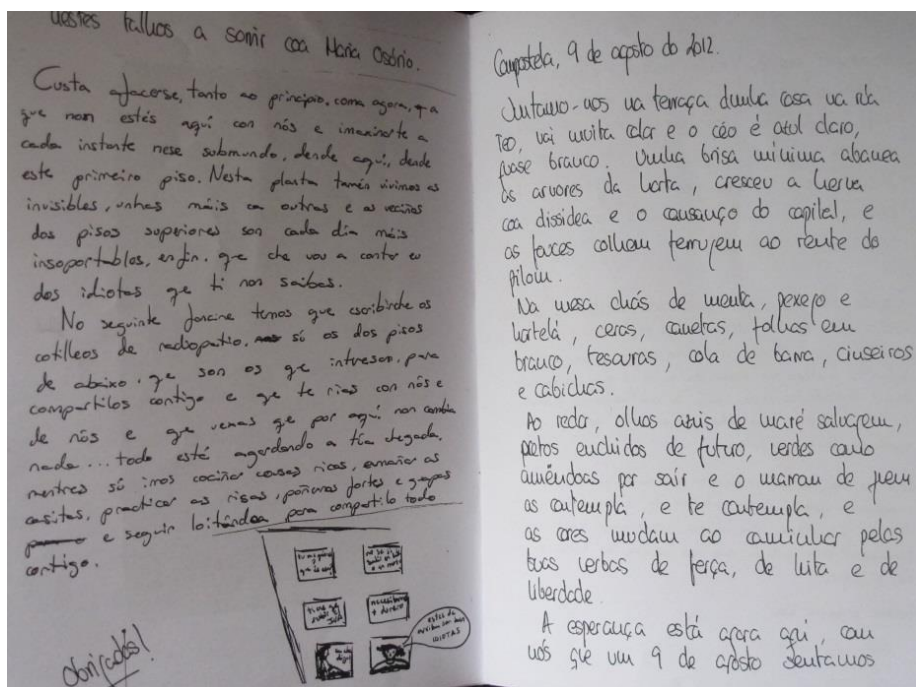 nestes talhos a sorrir coa Maria Osório.
Custa afacerse, tanto ao principio, como agora, a
que non estés aquí con nós e imaxinarte a
cada instante nese submundo, dende aquí, dende
este primeiro piso. Nesta planta tamén vivimos as
invisibles, unhas máis ca outras e as veciñas
dos pisos superiores son cada día máis
insoportables, enfin, que che vou a contar eu
dos idiotas qe ti non saibas.
No seguinte fancine temos que escribirche os
cotilleos de radiopatio, só os dos pisos
de abaixo, qe son os qe intresan, para
compartilos contigo e qe te rias con nós e
de nós e qe vexas qe por aquí non cambia
nada... todo está agardando a túa chegada,
mentres só imos cociñar cousas ricas, amañar as
casitas, practicar as risas, poñernos fortes e guapas
e seguir loitándoa para compartilo todo
contigo.
necesitamos
+ dereito
estes de
arriba son uns
IDIOTAS
obrigadas!
Compostela, 9 de agosto do 2012.
Juntamo-nos na terraça dunha casa na rúa
Teo, vai muita calor e o céo é azul claro,
quase branco. Unha brisa mínima abanea
as arvores da horta, cresceu a herva
coa dissidea e o cansanço do capital, e
as fouces colhem ferrujem ao rente do
pilom.
Na mesa chás de menta, pexejo e
hortelá, ceras, canetas, folhas em
branco, tesouras, cola de barra, cinseiros
e cabichas.
Ao redor, olhos azuis de maré salvagem,
pretos enchidos de futuro, verdes como
améndoas por sair e o marrom de quem
as contempla, e te contempla, e
as cores mudam ao caminhar pelas
tuas verbas de força, de luita e de
liberdade.
A esperança está agora aqui, com
nós que um 9 de agosto sentamos